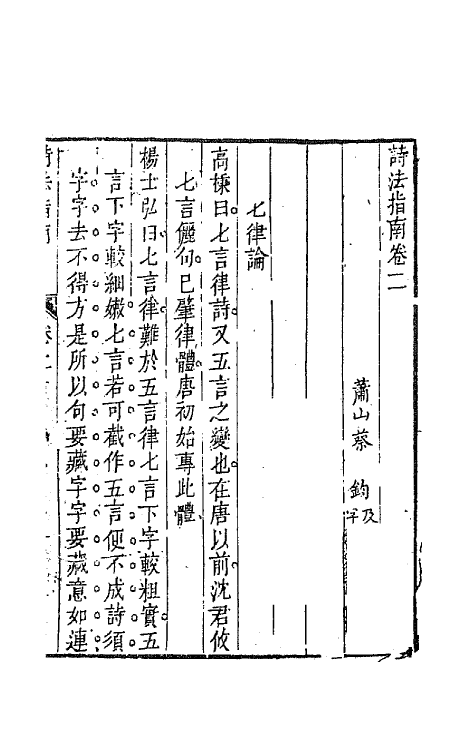 詩法指南卷二
蕭山蔡 鈞及字
七律論
高棅曰七言律詩又五言之變也在唐以前沈君攸
七言儷句已肇律體唐初始專此體
楊士弘曰七言律難於五言律七言下字較粗實五
言下字較細嫩七言若可截作五言便不成詩須
字字去不得方是所以句要藏字字要藏意如連
詩法指南 卷二